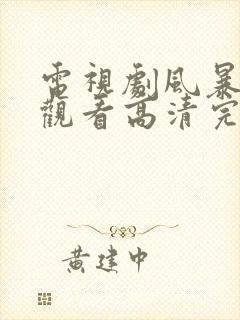 電視劇風暴
觀看高清完
黃建中